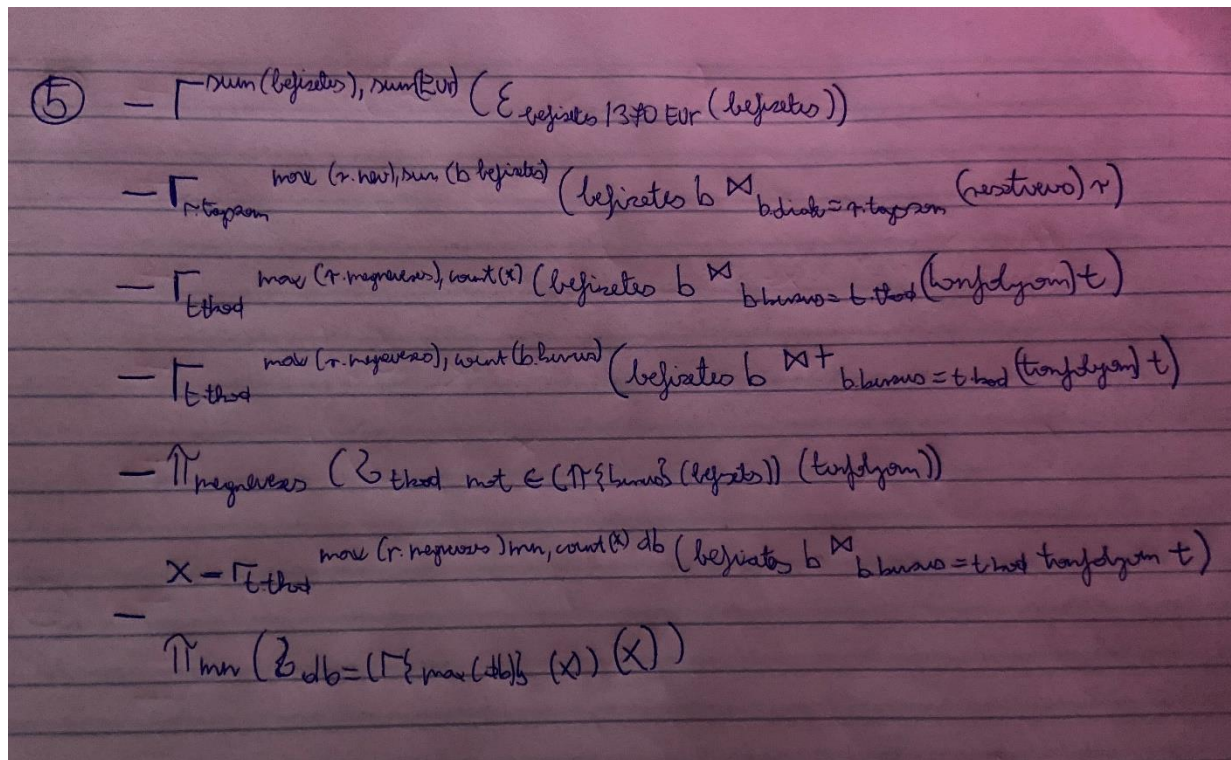 ⑤ - Γ sum(befizetes), sum(Eur) (Ɛ befizetes/370 Eur (befizetes))
- Γ r.tagazon max (r.nev), sum (b befizetes) (befizetes b ⋈ b.diak = r.tagazon (resztvevo) r)
- Γ t.tkod max (r.megnevezes), count(*) (befizetes b ⋈ b.kurzus = t.tkod (tanfolyam) t)
- Γ t.tkod max (r.megnevezes), count (b.kurzus) (befizetes b ⋈+ b.kurzus = t.kod (tanfolyam) t)
- π megnevezes (σ tkod not ∈ (π{kurzus} (befizetes)) (tanfolyam))
X - Γ t.tkod max (r.megnevezes) mn, count(*) db (befizetes b ⋈ b.kurzus = t.kod tanfolyam t)
-
π mn (σ db = (Γ{max(db)} (x)) (X))